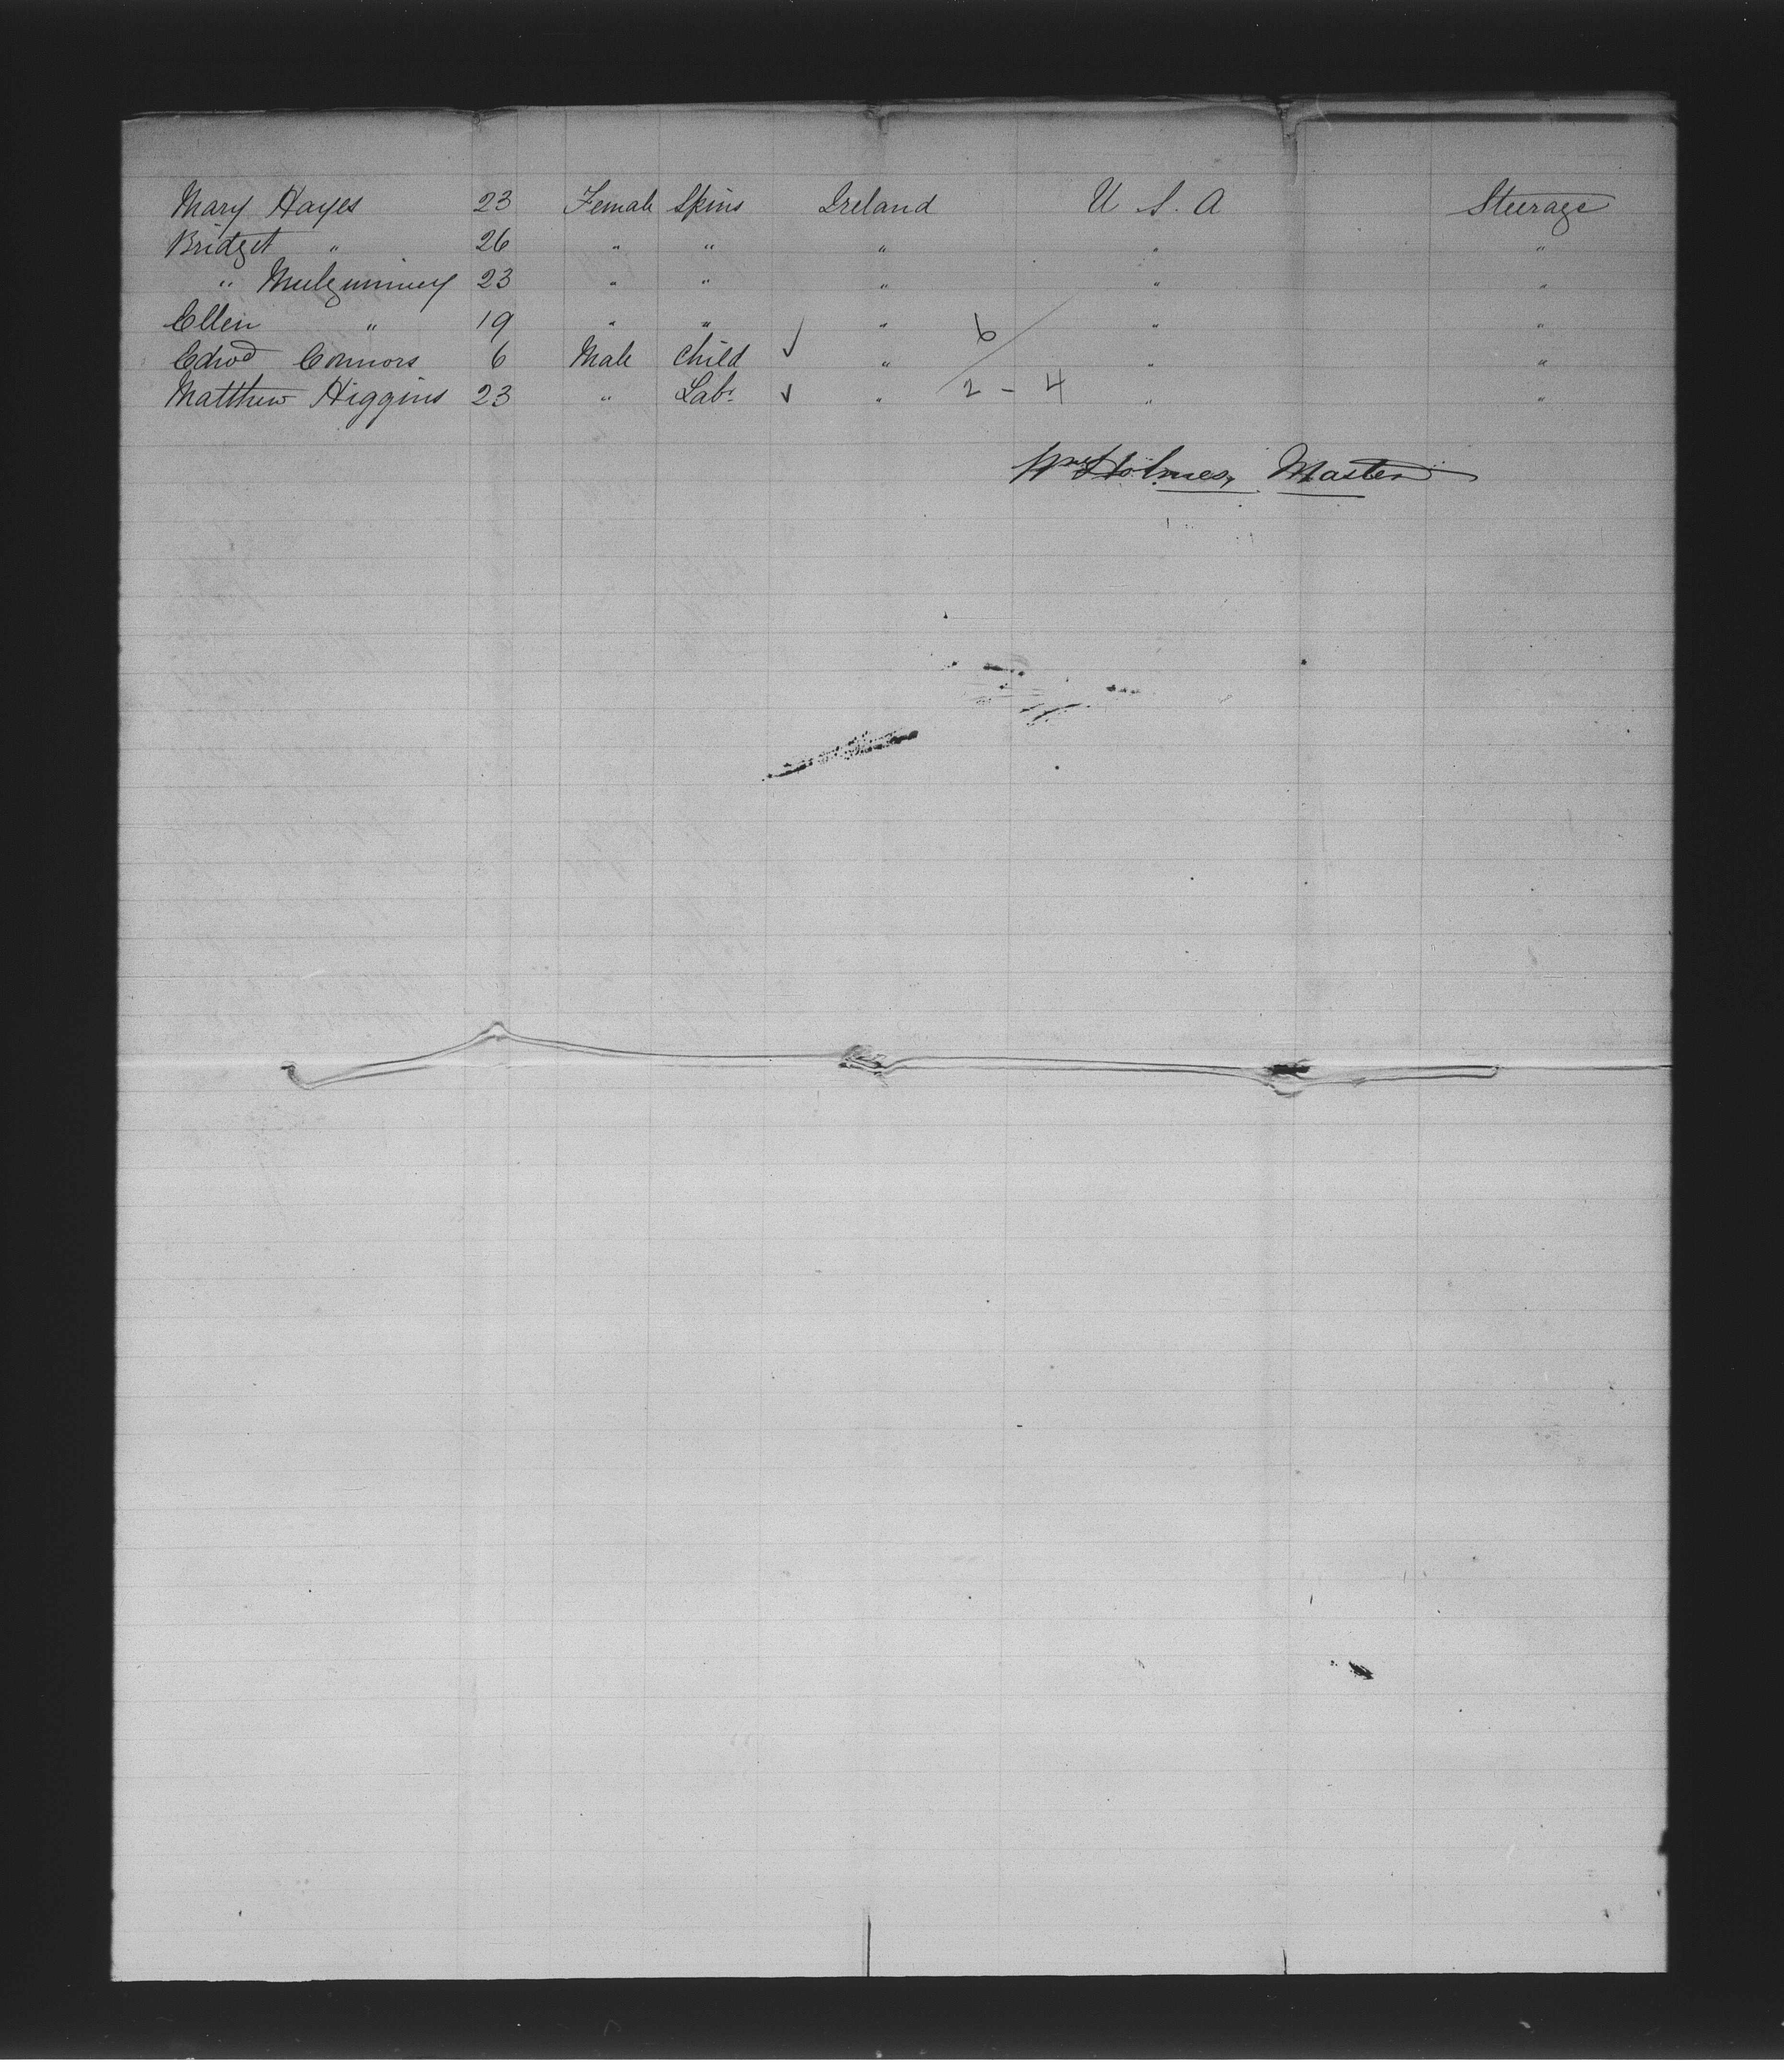 Mary Hayes 23 Female Spins Ireland U S. A Steerage
Bridget " 26 " " " " "
" Mulquinney 23 " " " " "
Ellen " 19 " " " 6 " "
Edwd Connors 6 Male Child ✓ " " "
Matthew Higgins 23 " Labr ✓ " 2 - 4 " "
Wm Holmes, Master